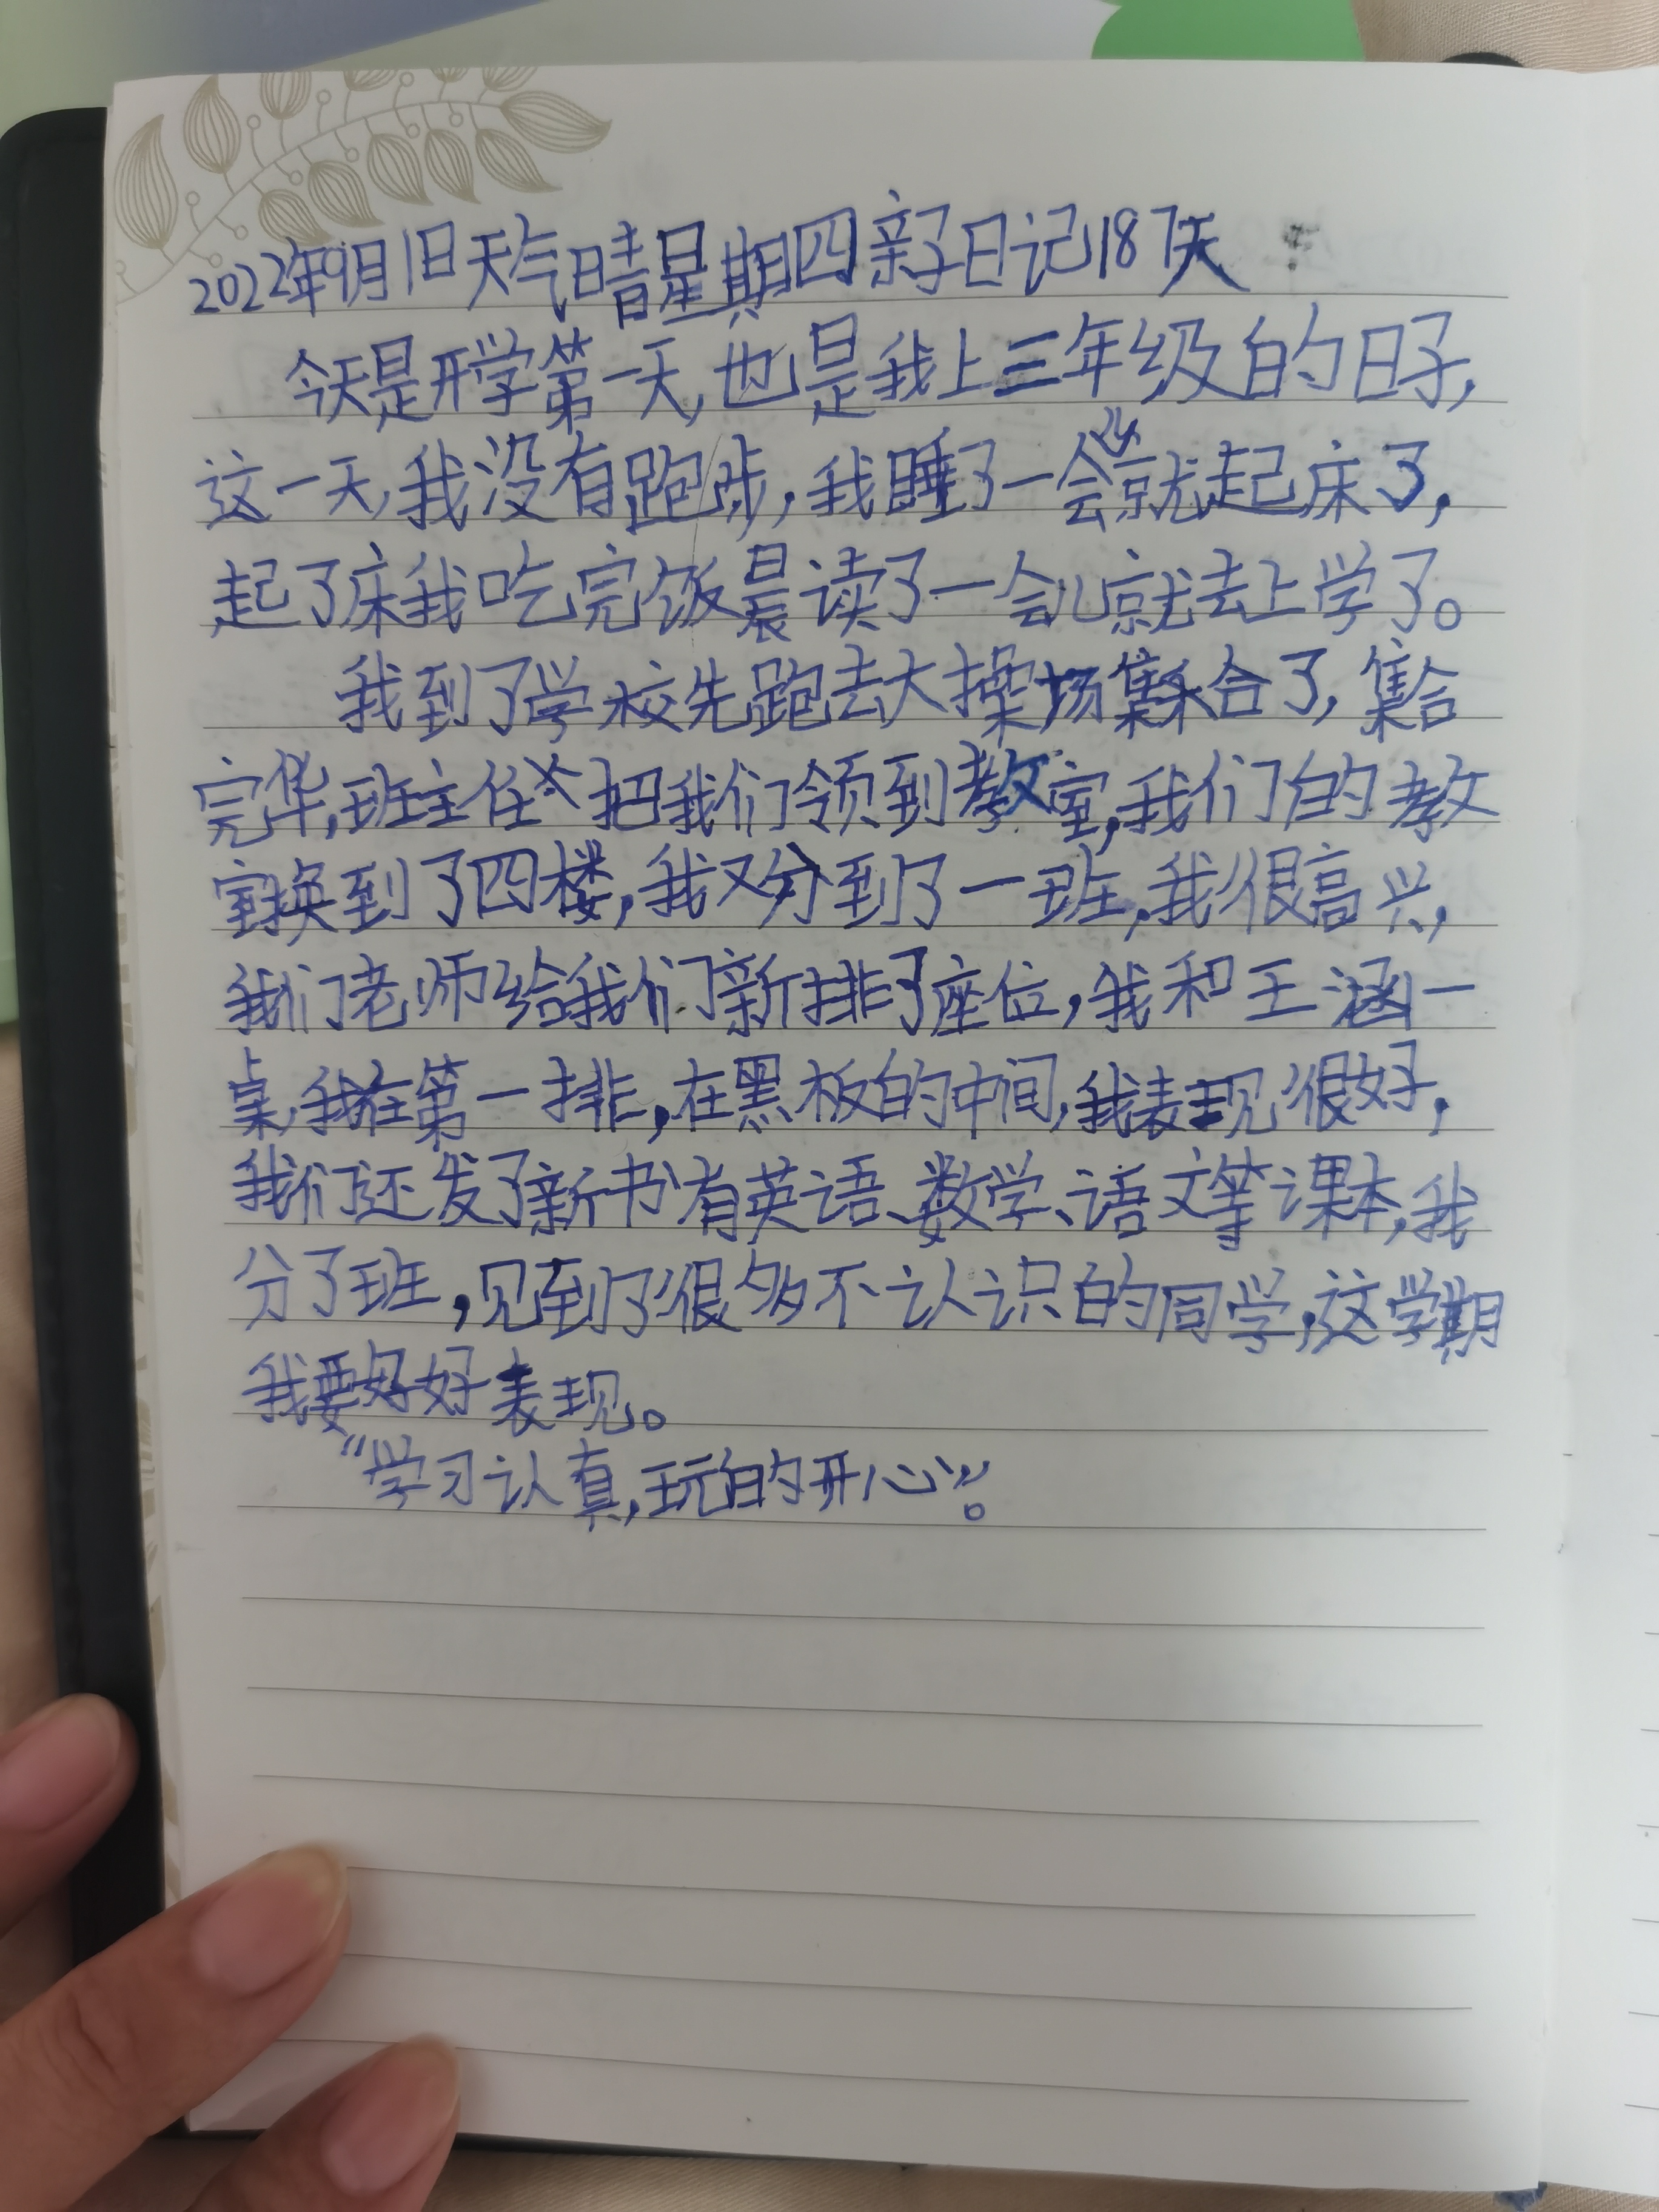 2022年9月1日天气晴星期四亲子日记187天
今天是开学第一天,也是我上三年级的日子,
这一天,我没有跑步,我睡了一会儿就起床了,
起了床我吃完饭晨读了一会儿就去上学了。
我到了学校先跑去大操场集合了,集合
完毕,班主任把我们领到教室,我们的教
室换到了四楼,我又分到了一班,我很高兴,
我们老师给我们新排了座位,我和王涵一
桌,我在第一排,在黑板的中间,我表现很好,
我们还发了新书有英语、数学、语文等课本,我
分了班,见到了很多不认识的同学,这学期
我要好好表现。
“学习认真,玩的开心”。